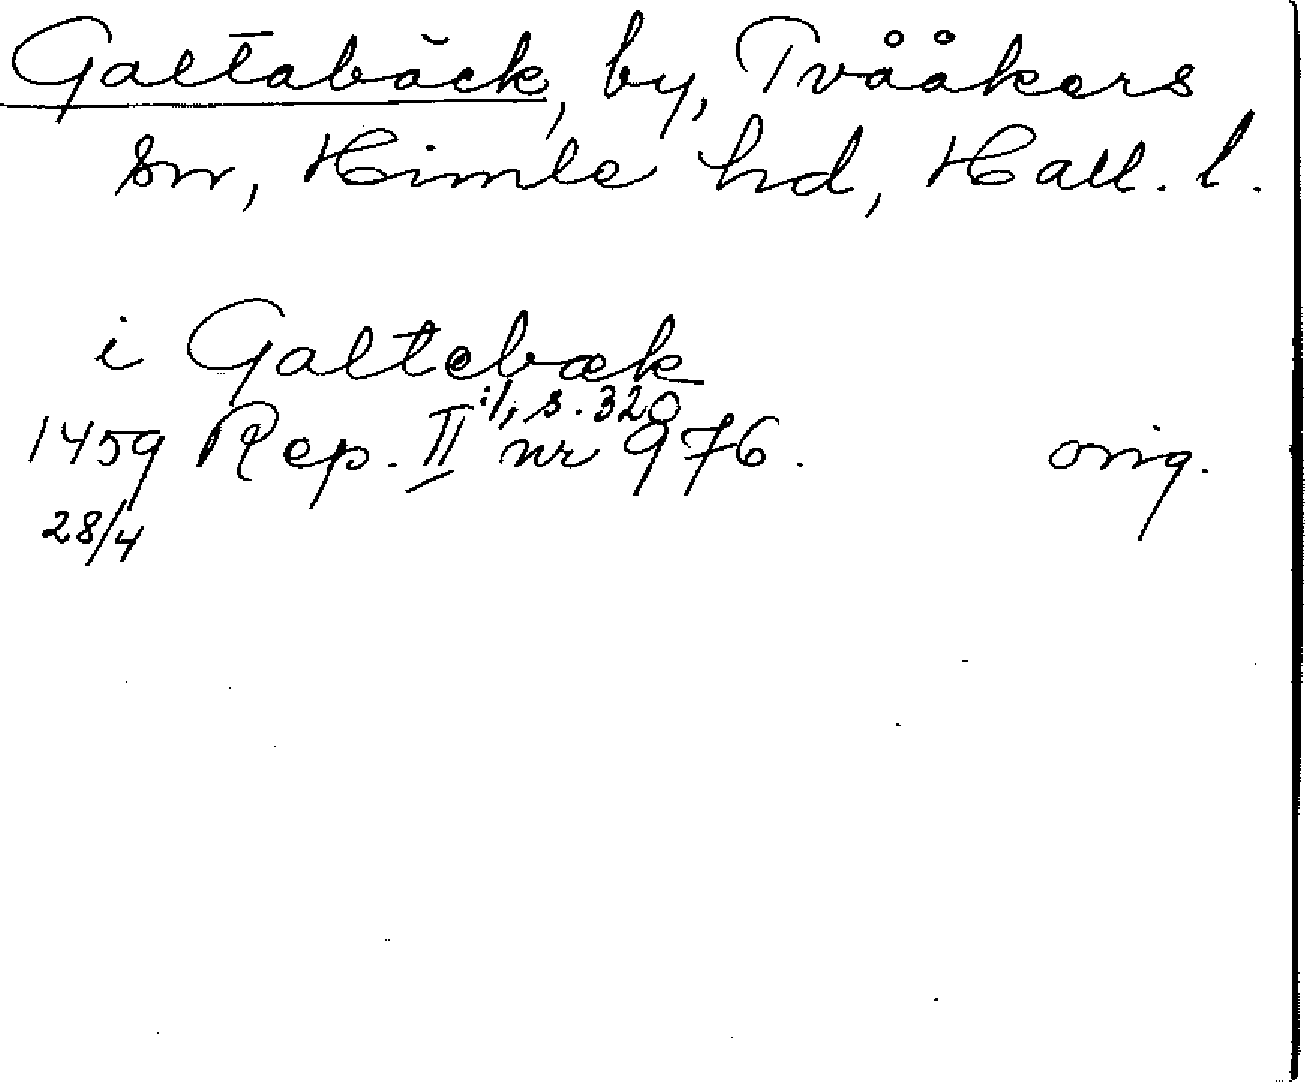 Galtabäck, by, Tvååkers
sn, Himle hd, Hall. l.
i Galtebæk
:1, s. 320
1459 Rep. II nr 976. orig.
28/4